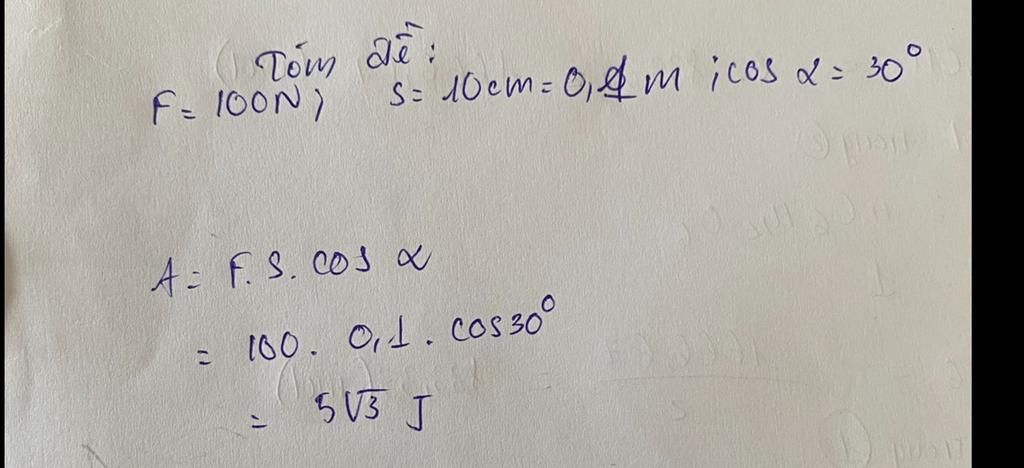 Tóm đề:
F = 100N; S = 10cm = 0,1 m ; cos α = 30°
A = F. S. cos α
= 100. 0,1. cos30°
= 5√3 J